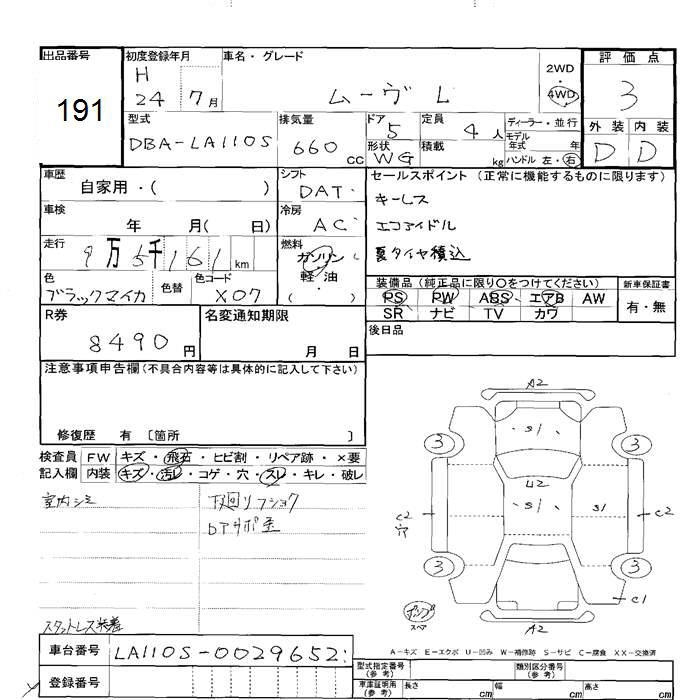 出品番号 初度登録年月 車名・グレード 評価点
191
H 24 7月 ムーヴ L 2WD・4WD 3
型式 排気量 ドア 定員 ディーラー・並行 外装 内装
DBA-LA110S 660cc 5 4人 モデル年式 年 D D
形状 積載 kg ハンドル 左・右
WG
車歴 シフト セールスポイント(正常に機能するものに限ります)
自家用・( ) DAT・
キーレス
車検 冷房
年 月( 日) AC
エコアイドル
走行 燃料
9万5千161km ガソリン
夏タイヤ積込
軽・油
・
( )
色 色替 色コード
ブラックマイカ X07
装備品(純正品に限り○をつけてください) 新車保証書
PS PW ABS エアB AW 有・無
SR ナビ TV カワ
R券 名変通知期限
8490円 月 日
後日品
注意事項申告欄(不具合内容等は具体的に記入して下さい)
修復歴 有 〔箇所 〕
検査員 FW キズ・飛石・ヒビ割・リペア跡・×要
記入欄 内装 キズ・汚レ・コゲ・穴・スレ・キレ・破レ
室内シミ
下廻リフショク
スタットレス装着
A2
S1
3 3
U2
S1 S1
C2 穴 C2
3 3
C1
A2
スペア
A-キズ E-エクボ U-凹み W-補修跡 S-サビ C-腐食 XX-交換済
車台番号 LA110S-0029652
登録番号
型式指定番号(参考) 類別区分番号(参考)
車庫証明用(参考) 長さ cm 幅 cm 高さ cm